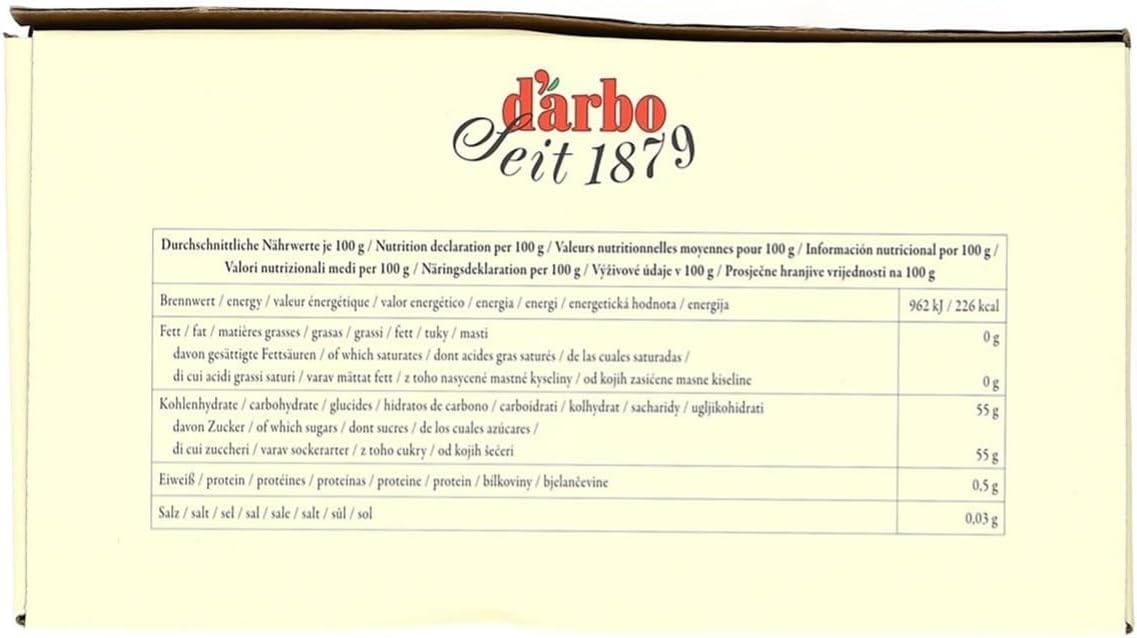 d'arbo
Seit 1879
Durchschnittliche Nährwerte je 100 g / Nutrition declaration per 100 g / Valeurs nutritionnelles moyennes pour 100 g / Información nutricional por 100 g /
Valori nutrizionali medi per 100 g / Näringsdeklaration per 100 g / Výživové údaje v 100 g / Prosječne hranjive vrijednosti na 100 g
Brennwert / energy / valeur énergétique / valor energético / energia / energi / energetická hodnota / energija 962 kJ / 226 kcal
Fett / fat / matières grasses / grasas / grassi / fett / tuky / masti 0 g
davon gesättigte Fettsäuren / of which saturates / dont acides gras saturés / de las cuales saturadas /
di cui acidi grassi saturi / varav mättat fett / z toho nasycené mastné kyseliny / od kojih zasićene masne kiseline 0 g
Kohlenhydrate / carbohydrate / glucides / hidratos de carbono / carboidrati / kolhydrat / sacharidy / ugljikohidrati 55 g
davon Zucker / of which sugars / dont sucres / de los cuales azúcares /
di cui zuccheri / varav sockerarter / z toho cukry / od kojih šećeri 55 g
Eiweiß / protein / protéines / proteínas / proteine / protein / bílkoviny / bjelančevine 0,5 g
Salz / salt / sel / sal / sale / salt / sůl / sol 0,03 g